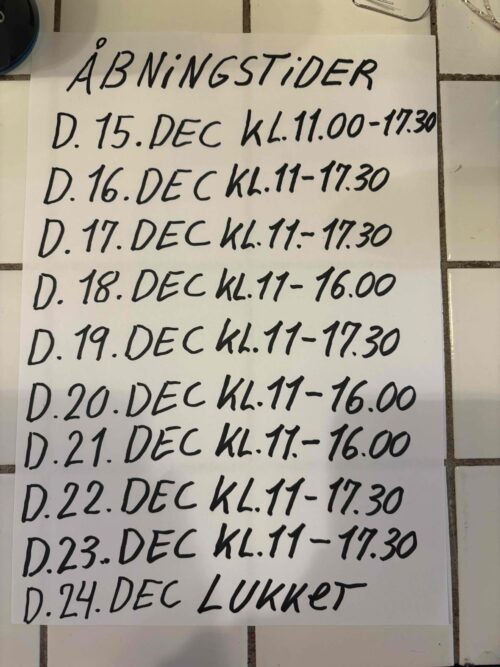 ÅBNiNGSTiDER
D. 15. DEC KL. 11.00-17.30
D. 16. DEC KL. 11-17.30
D. 17. DEC KL. 11.-17.30
D. 18. DEC KL. 11-16.00
D. 19. DEC KL. 11-17.30
D. 20. DEC KL. 11-16.00
D. 21. DEC KL. 11.-16.00
D. 22. DEC KL. 11-17.30
D. 23.. DEC KL. 11-17.30
D. 24. DEC LUKKET